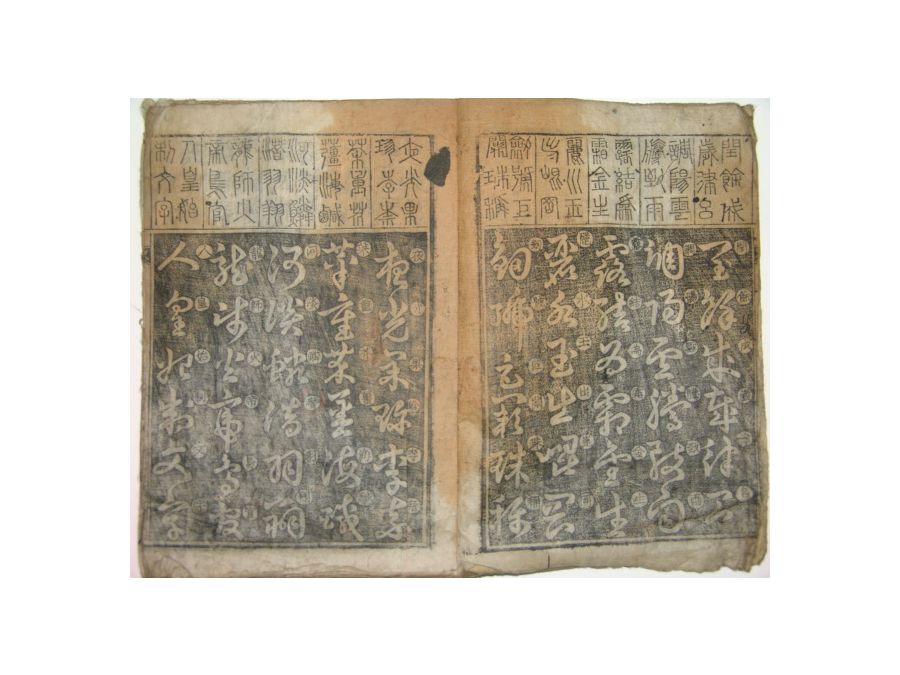 閏餘成
歲律呂
調陽雲
騰致雨
露結爲
霜金生
麗水玉
出崐岡
劍號巨
闕珠稱
夜光果
珍李柰
菜重芥
薑海鹹
河淡鱗
潛羽翔
龍師火
帝鳥官
人皇始
制文字
閏餘成歲律呂
調陽雲騰致雨
露結爲霜金生
麗水玉出崐岡
劍號巨闕珠稱
夜光果珍李柰
菜重芥薑海鹹
河淡鱗潛羽翔
龍師火帝鳥官
人皇始制文字